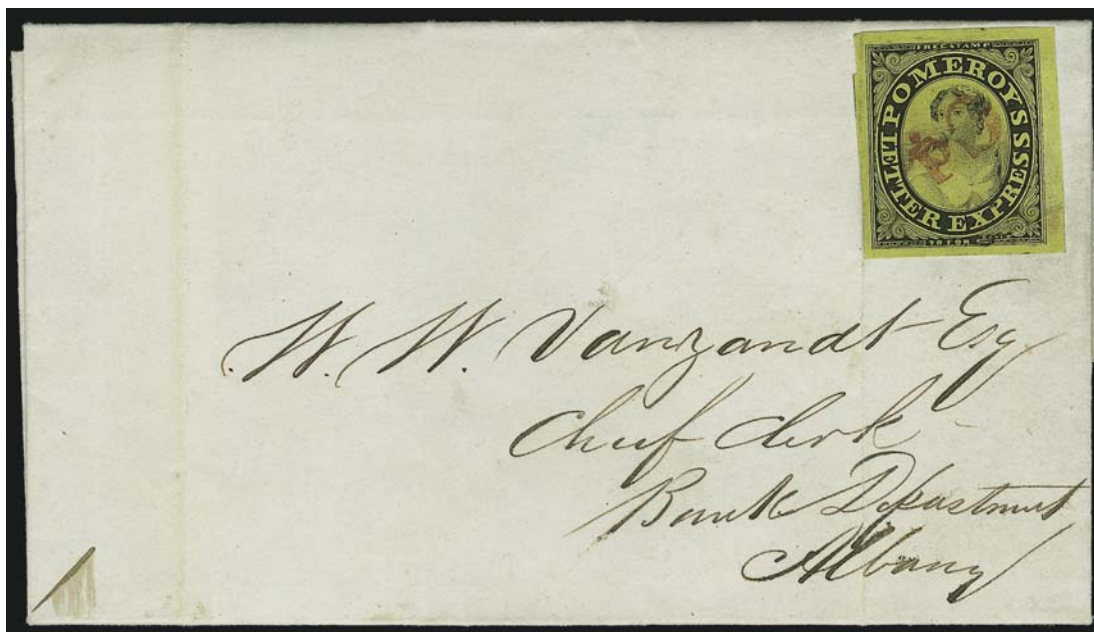 FREE STAMP
POMEROYS
LETTER EXPRESS
20 FOR
W. W. Vanzandt Esq
Chief Clerk
Bank Department
Albany